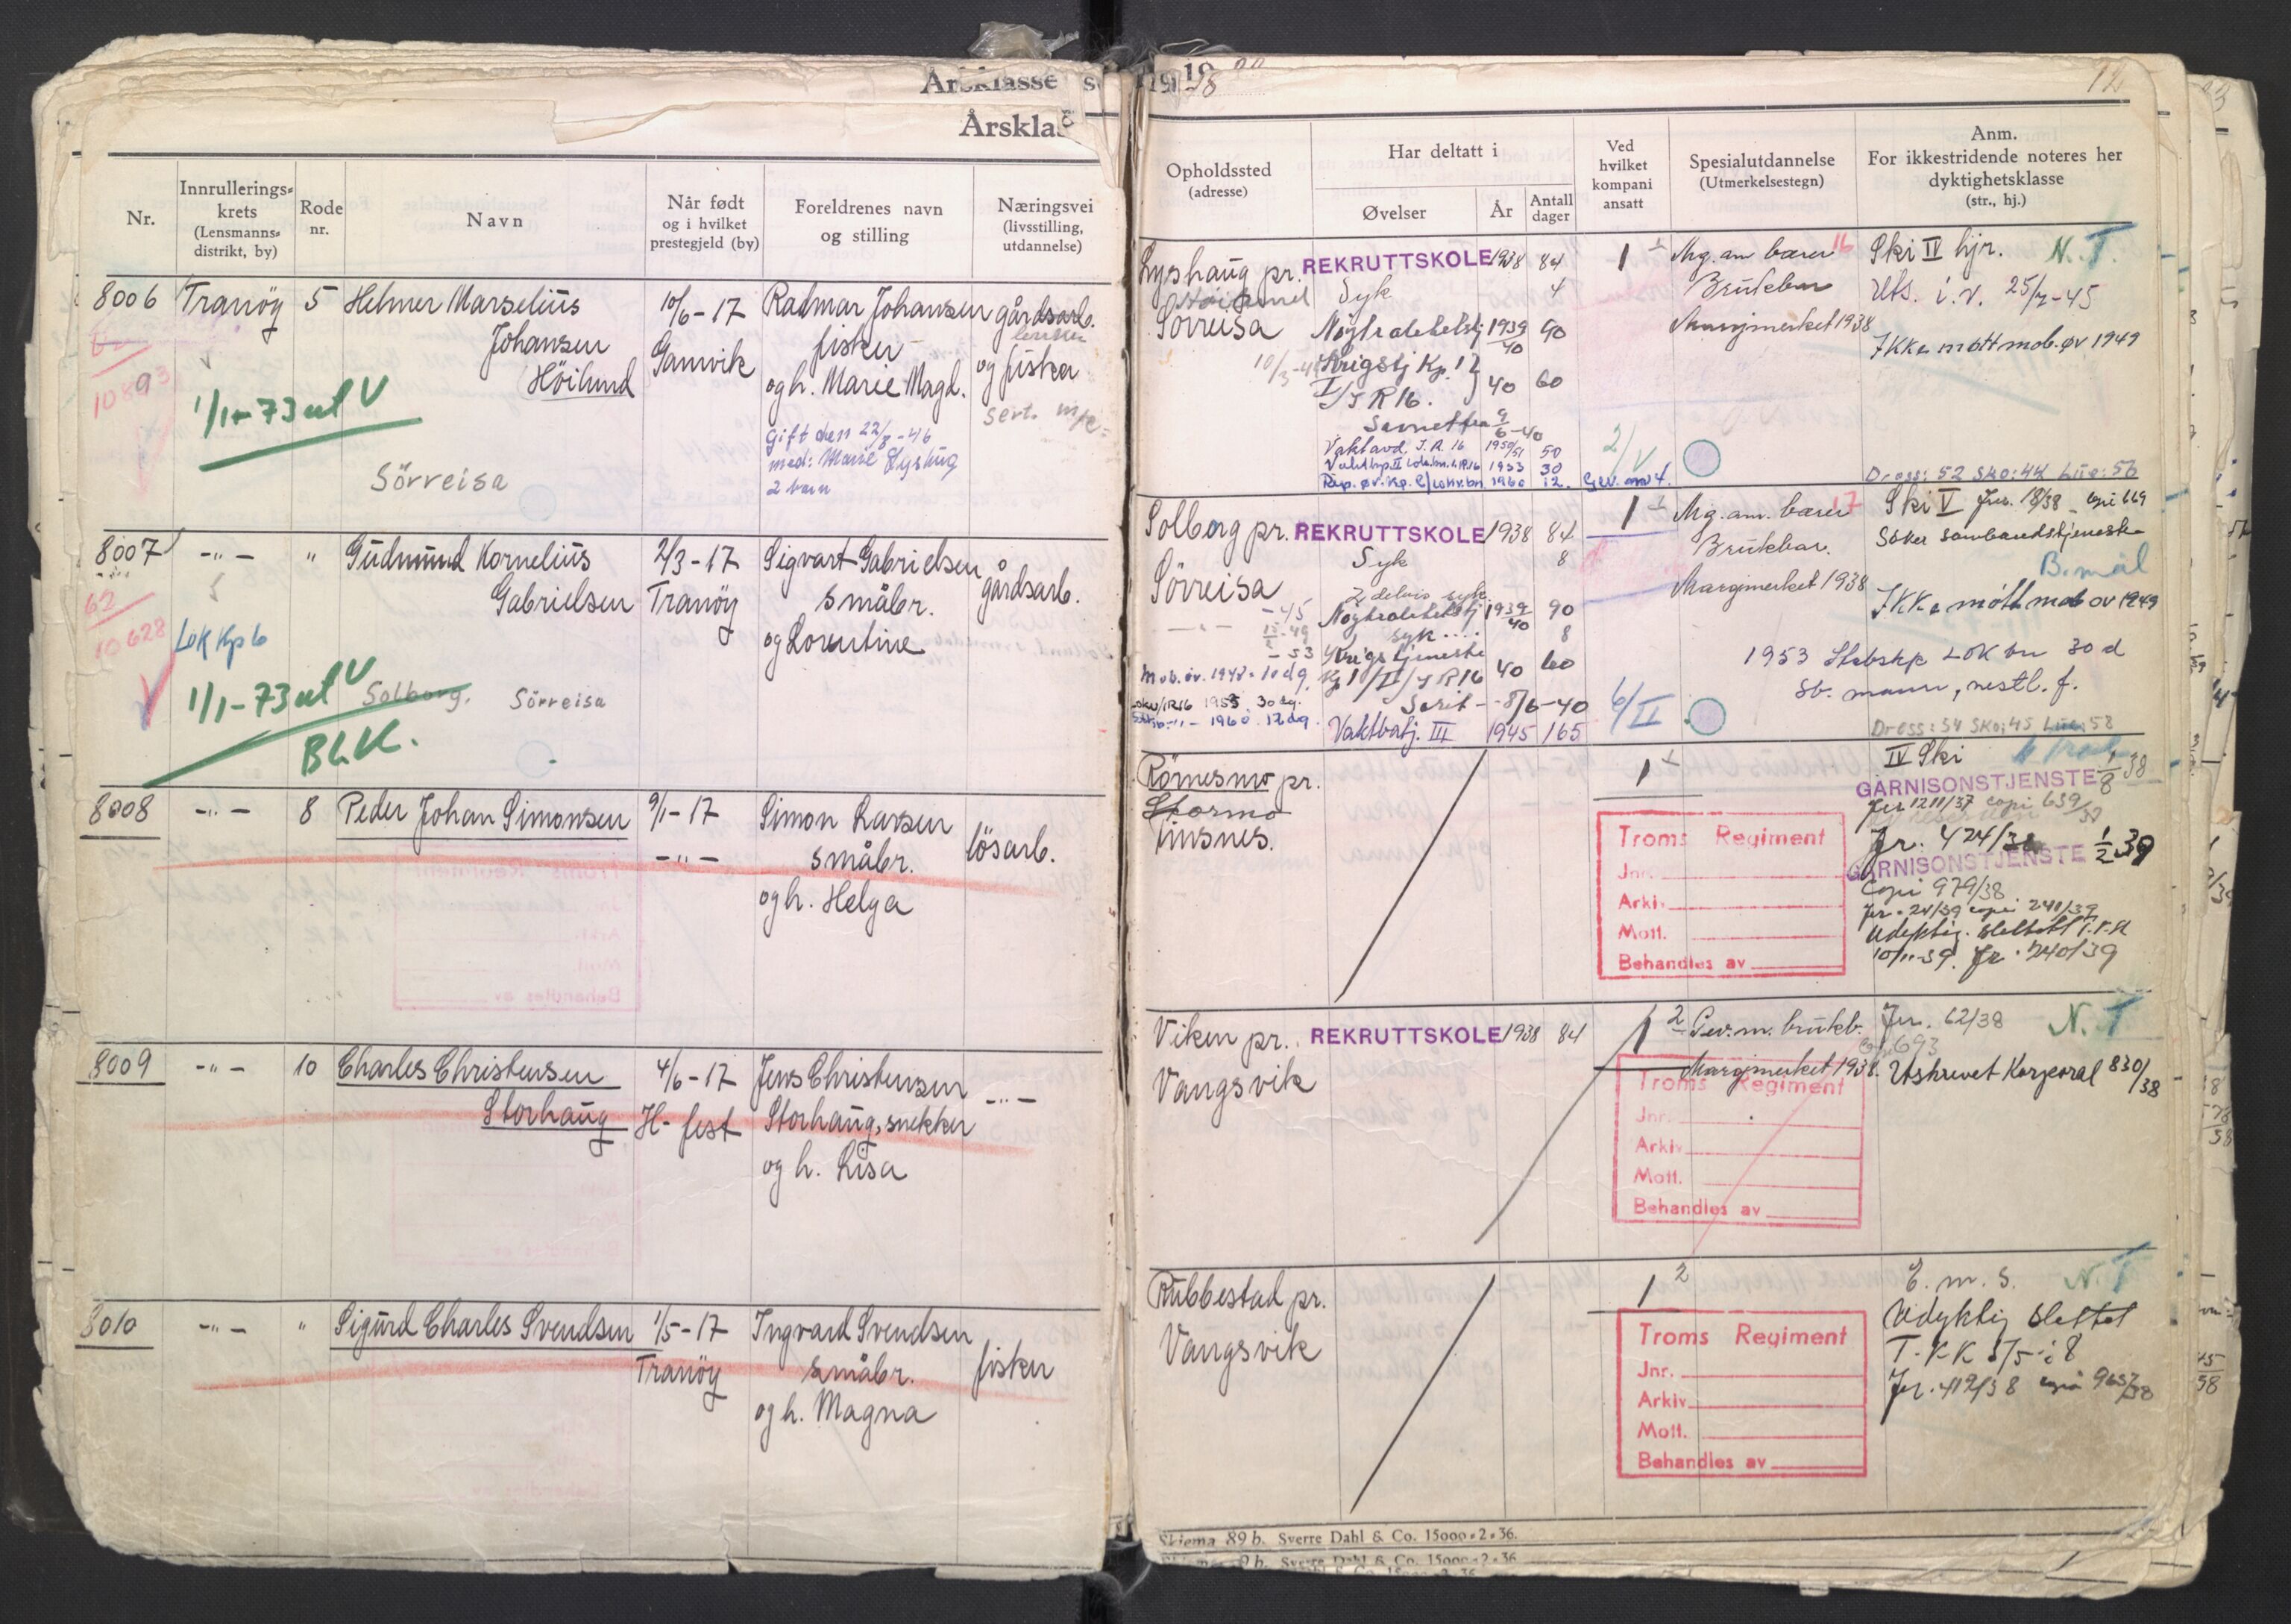 Årsklasse
Årsklas
Nr.
Innrullerings-
krets
(Lensmanns-
distrikt, by)
Rode
nr.
Navn
Når født
og i hvilket
prestegjeld (by)
Foreldrenes navn
og stilling
Næringsvei
(livsstilling,
utdannelse)
8006 Tranöy 5 Helmer Marselius
Johansen
Höilund
10/6-17
Gamvik
Radmar Johansen
fisker
og h. Marie Magd.
gårdsarb.
og fisker
Gift den 22/8-46
med: Marie Lyshug
2 barn
1/1-73 ut V
Sörreisa
8007 -"- " Gudmund Kornelius
Gabrielsen
2/3-17
Tranöy
Sigvart Gabrielsen
småbr.
og Lorentine
gårdsarb.
62
10628
LOK Kp 6
1/1-73 ut V
Solborg. Sörreisa
BLK.
8008 -"- 8 Peder Johan Simonsen
9/1-17
-"-
Simon Larsen
småbr.
og h. Helga
lösarb.
8009 -"- 10 Charles Christensen
Storhaug
4/6-17
H-fest
Jens Christensen
Storhaug, snekker
og h. Lisa
-"-
8010 -"- " Sigurd Charles Svendsen
1/5-17
Tranöy
Ingvard Svendsen
småbr.
og h. Magna
fisker
12
Opholdssted
(adresse)
Har deltatt i
Øvelser
År
Antall
dager
Ved
hvilket
kompani
ansatt
Spesialutdannelse
(Utmerkelsestegn)
Anm.
For ikkestridende noteres her
dyktighetsklasse
(str., hj.)
Lyshaug pr. REKRUTTSKOLE 1938 84
Syk 4
Sörreisa Nöytralitetstj 1939/40 90
Krigstj Kp. 1
I/I R 16. 40 60
Vaktavd. I.R. 16 1950/51 50
1953 30
Rep. øv. Kp. 1960 12
1
Mg. am. bærer 16
Brukbar
Marsjmerket 1938
Ski IV hjr. N.T.
Uts. i. V. 25/7-45
Ikke møtt mob. øv 1949
Dress: 52 Sko: 44 Lue: 56
Solborg pr. REKRUTTSKOLE 1938 84
Syk 8
Sörreisa
Nöytralitetstj 1939/40 90
syk 8
Krigstjeneste
Kp 1/II/I R 16 40 60
Mob. øv. 1948 - 10 dg.
1955 30 dg.
1960 12 dg.
Vaktbatj. III 1945 165
6/II
1
Mg. am. bærer 17
Brukbar.
Marsjmerket 1938
Ski V Jnr. 18/38 - copi 669
Söker sambandstjeneste
B. mål
Ikke møtt mob øv 1949
1953 Stabskp LOK bn 30 d
Sb. mann, nestl. f.
Dress: 54 Sko: 45 Lue: 58
Römesmo pr.
Stormo
Finsnes.
1
Troms Regiment
Jnr.
Arkiv
Mott.
Behandles av
IV Ski
GARNISONSTJENSTE 1/8 38
Jnr 1211/37 copi 639/38
Jr. 424/38
GARNISONSTJENSTE 1/2 39
Copi 979/38
Jnr. 24/39 copi 241/39
Udyktig. slettet
10/11-39. Jr. 740/39
Viken pr. REKRUTTSKOLE 1938 84
Vangsvik
1 2
Gev. m. brukb.
Marsjmerket 1938.
Jnr. 62/38 N.T
693
Utskrevet Korporal 830/38
Troms Regiment
Jnr.
Arkiv
Mott.
Behandles av
Rubbestad pr.
Vangsvik
1 2
Troms Regiment
Jnr.
Arkiv
Mott.
Behandles av
E. m. s. N.T
Udyktig slettet
Jnr. 419/38
Skjema 89 b. Sverre Dahl & Co. 15000-2-36.